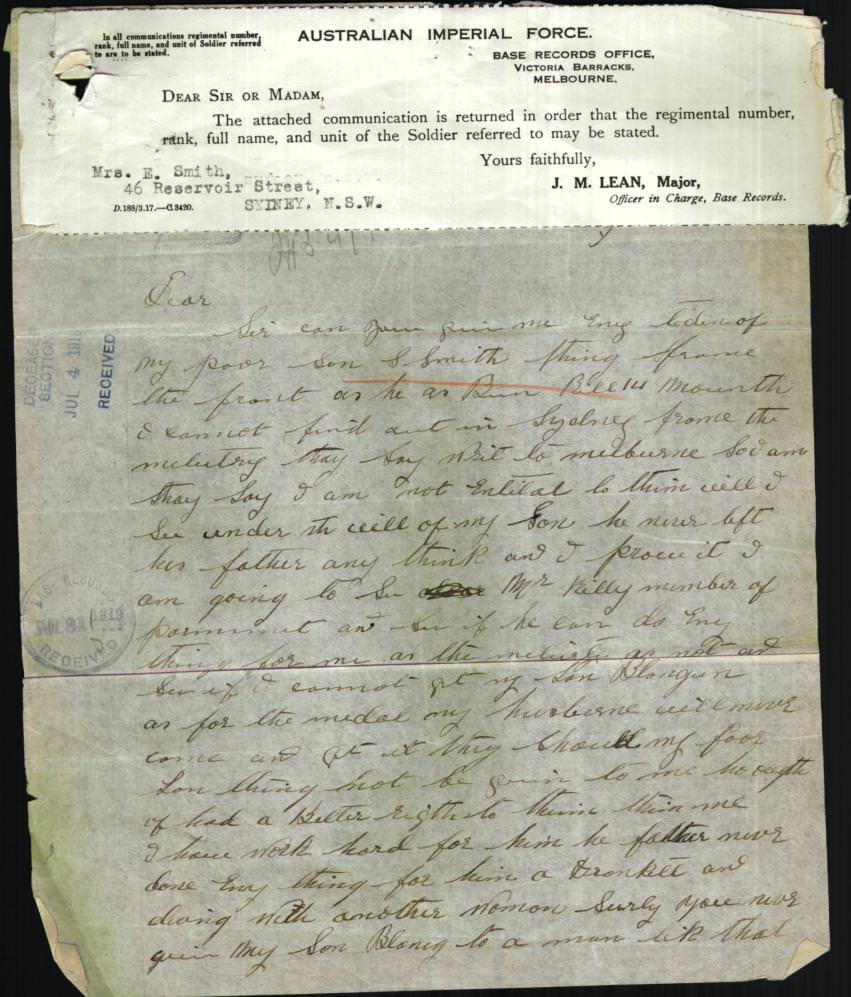 In all communications regimental number,
rank, full name, and unit of Soldier referred
to are to be stated.
AUSTRALIAN IMPERIAL FORCE.
BASE RECORDS OFFICE,
VICTORIA BARRACKS,
MELBOURNE.
DEAR SIR OR MADAM,
The attached communication is returned in order that the regimental number,
rank, full name, and unit of the Soldier referred to may be stated.
Yours faithfully,
Mrs. E. Smith,
46 Reservoir Street,
SYDNEY. N.S.W.
J. M. LEAN, Major,
Officer in Charge, Base Records.
D.188/3.17.—C.3420.
DECEASED
SECTION
JUL 4 191
RECEIVED
Dear
Sir can you giv me Eny tiden of
my poor son S Smith thing frome
the front as he as Bun Kill 14 mounth
I cannot find out in Sydney frome the
melutery thay Say writ to melburne So I am
thay Say I am not Entilal to thim will I
See under th will of my Son he never left
his father any think and I prove it I
am going to See Mr Killy member of
parmimut and See if he can do Eny
thing for me as the melutery as not and
See if I cannot get my Son Blongun
as for the medal my husberne will never
come and get it they should my poor
Son thing not be givin to me ho ougth
of had a Better rigth to thim thin me
I have work hard for him he father never
done Eny thing for him a dronkett and
living with another woman Surly you never
giv my Son Blong to a man lik that
RECEIVED